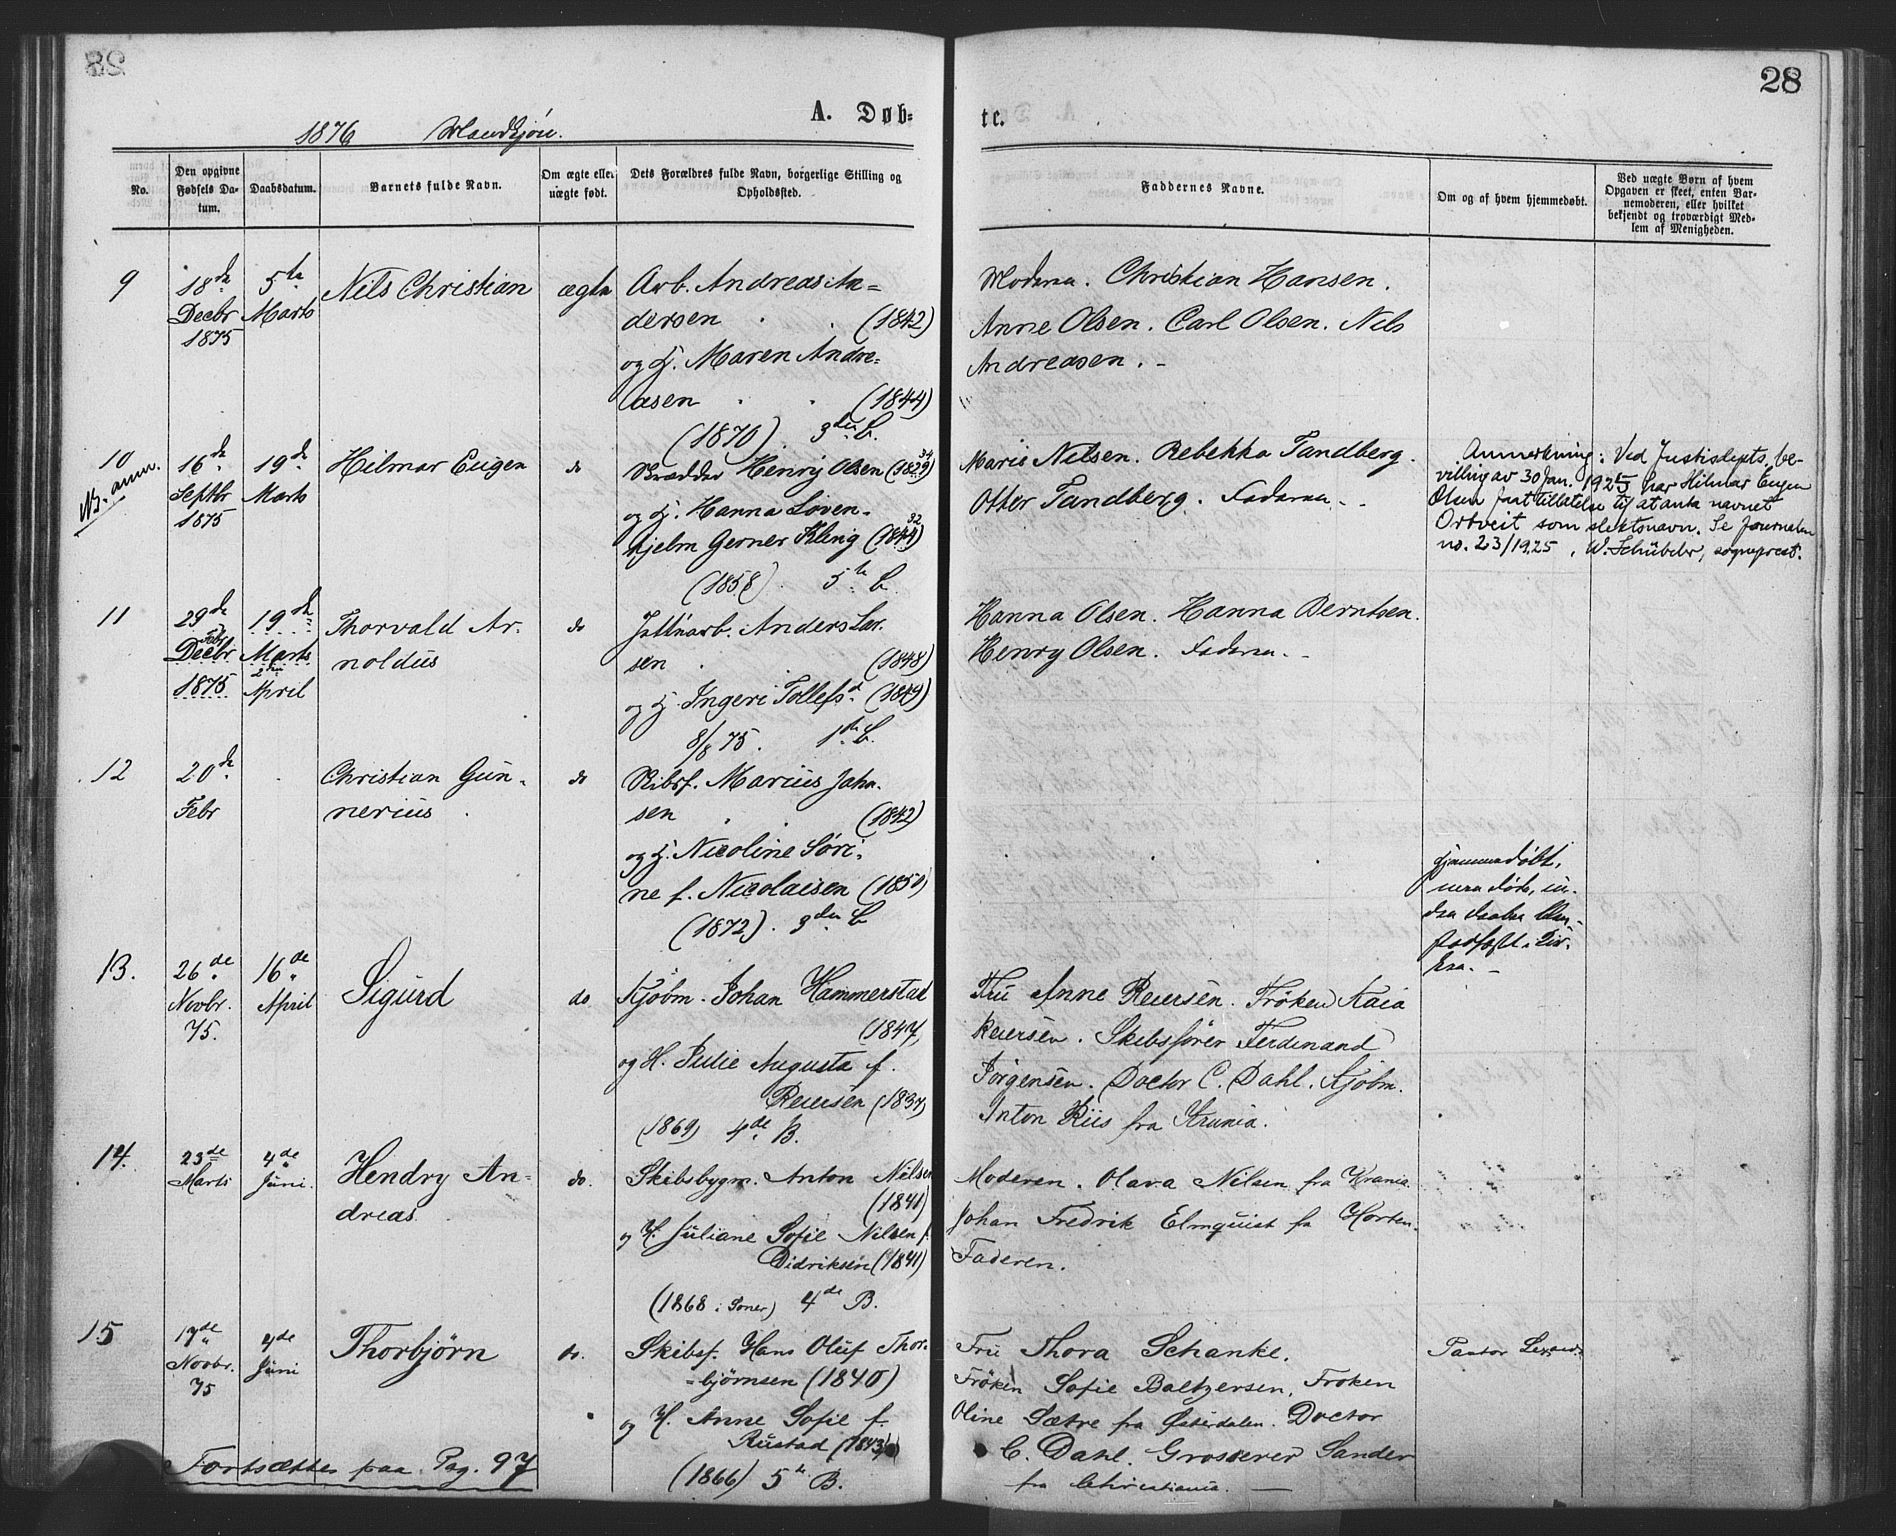 28
A. Døb-
te.
1876 Mandkjøn.
No.
Den opgivne Fødsels Da-
tum.
Daabsdatum.
Barnets fulde Navn.
Om ægte eller
uægte født.
Dets Forældres fulde Navn, borgerlige Stilling og
Opholdssted.
Faddernes Navne.
Om og af hvem hjemmedøbt.
Ved uægte Børn af hvem
Opgaven er skeet, enten Bar-
nemoderen, eller hvilket
bekjendt og troværdigt Med-
lem af Menigheden.
9
18de
Decbr
1875
5te
Marts
Nils Christian
ægte
Arb. Andreas An=
dersen (1842)
og h. Maren Andre=
asen (1844)
(1870). 3die B.
Moderen. Christian Hansen.
Anne Olsen. Carl Olsen. Nils
Andreasen. -
10
NB. anm.
16de
Septbr
1875
19de
Marts
Hilmar Eugen
do
Skrædder Henry Olsen (1829) 34
og h. Hanna Løven-
hjelm Gerner Kling (1844) 32
(1858). 5te B.
Marie Nilsen. Rebekka Tandberg.
Otter Tandberg. Faderen -
Anmerkning: Ved Justisdepts be-
villing av 30 Jan. 1925 har Hilmar Eugen
Olsen faat tillatelse til at anta navnet
Ortveit som slektsnavn. Se journalen
no. 23/1925, W. Schübeler, sogneprest.
11
29de
Febr
Decbr
1875
19de
Marts
2den
April
Thorvald Ar-
noldus
do
Anders Lar-
sen (1848)
og h. Ingeri Tollefsd. (1849)
8/8 75. 1te B.
Hanna Olsen. Hanna Berntsen.
Henry Olsen. Faderen. -
12
20de
Febr
Christian Gun-
nerius
do
Skibsf. Marius Joha-
sen (1842)
og h. Nicoline Søri-
ne f. Nicolaisen (1850)
(1872). 3die B
hjemmedøbt,
men døde, in-
den daaben blev
stadfæst i Kir-
ken. -
13.
26de
Novbr.
75.
16de
April
Sigurd
do
Kjøbm. Johan Hammerstad
(1847)
og H. Julie Augusta f.
Reiersen (1837)
(1869) 4de B.
Fru Anne Reiersen. Frøken Kaia
Reiersen. Skibsfører Ferdinand
Jørgensen. Doctor C. Dahl. Kjøbm.
Anton Riis fra Krania.
14.
23de
Marts
4de
Juni.
Hendry An-
dreas
do.
Skibsbygm. Anton Nilsen
(1841)
og H. Juliane Sofie Nilsen f.
Didriksen (1841)
(1868 i Soner) 4de B.
Moderen. Olava Nilsen fra Krania.
Johan Fredrik Elmquist fra Horten.
Faderen.
15
17de
Novbr.
75
4de
Juni
Thorbjørn
do.
Skibsf. Hans Oluf Thor-
=bjørnsen (1840)
og H. Anne Sofie f.
Rustad (1843)
(1866) 5te B.
Fru Thora Schanke.
Frøken Sofie Baltzersen. Frøken
Oline Sætre fra Østerdalen. Doctor
C. Dahl. Grosserer Sander
fra Christiania. -
Pastor
Fortsættes paa Pag. 97